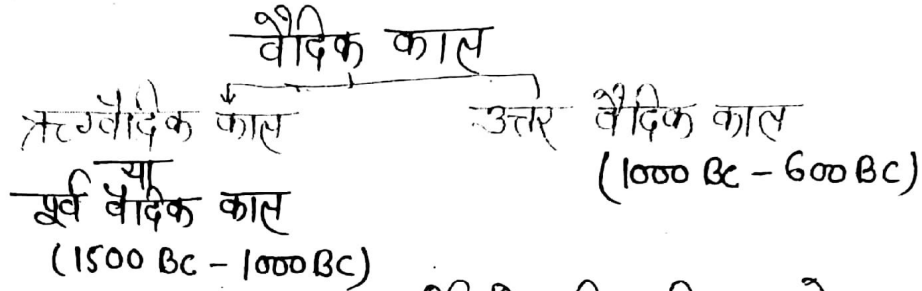 वैदिक काल
ऋग्वैदिक काल
या
पूर्व वैदिक काल
(1500 BC - 1000 BC)
उत्तर वैदिक काल
(1000 BC - 600 BC)